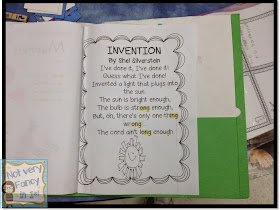 INVENTION
By Shel Silverstein
I've done it, I've done it!
Guess what I've done!
Invented a light that plugs into
the sun.
The sun is bright enough,
The bulb is strong enough,
But, oh, there's only one thing
wrong...
The cord ain't long enough.
Not very
Fancy